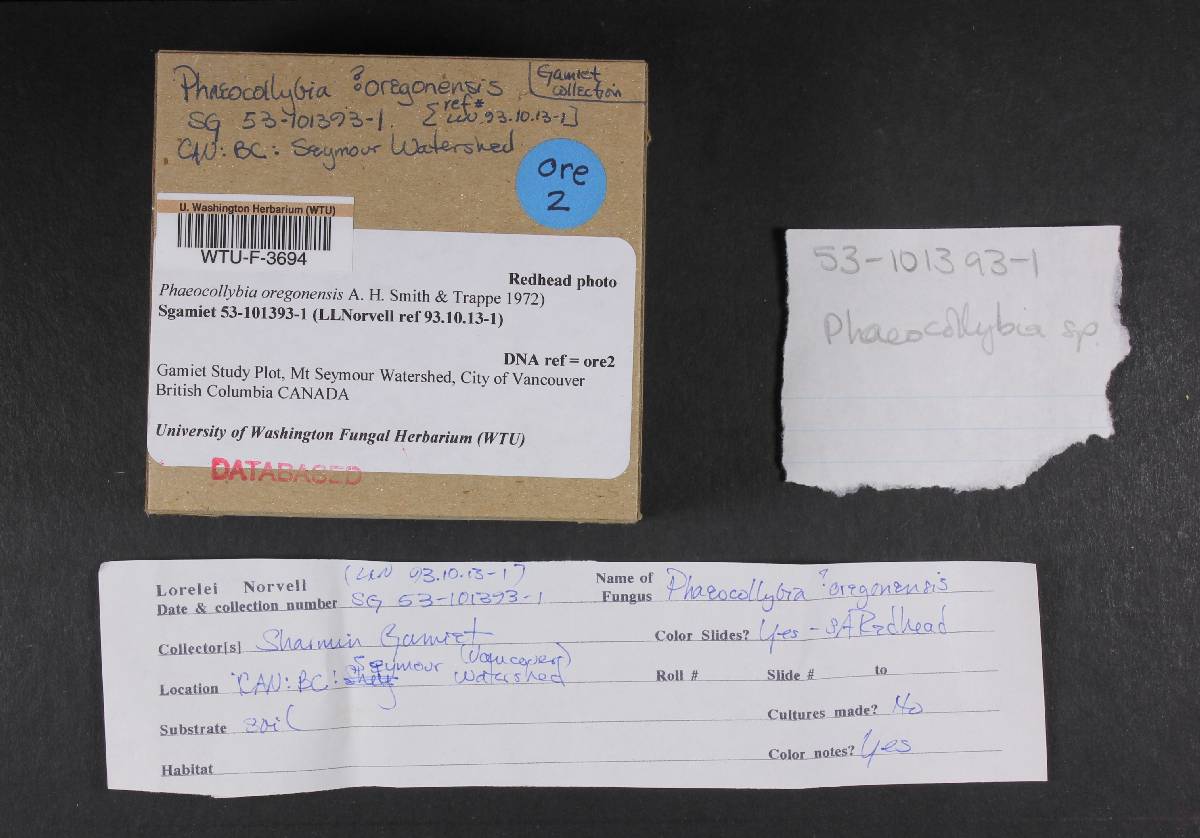 Phaeocollybia ?oregonensis
Gamiet collection
SG 53-101393-1. [ref# LLN 93.10.13-1]
CAN: BC: Seymour Watershed
Ore
2
U. Washington Herbarium (WTU)
WTU-F-3694
Redhead photo
Phaeocollybia oregonensis A. H. Smith & Trappe 1972)
Sgamiet 53-101393-1 (LLNorvell ref 93.10.13-1)
DNA ref = ore2
Gamiet Study Plot, Mt Seymour Watershed, City of Vancouver
British Columbia CANADA
University of Washington Fungal Herbarium (WTU)
DATABASED
53-101393-1
Phaeocollybia sp.
Lorelei Norvell (LLN 93.10.13-1)
Date & collection number SG 53-101393-1
Name of Fungus Phaeocollybia ?oregonensis
Collector[s] Sharmin Gamiet
Color Slides? Yes - SARedhead
Location CAN: BC: Seymour (Vancouver) Watershed
Roll # Slide # to
Substrate soil
Cultures made? No
Color notes? Yes
Habitat